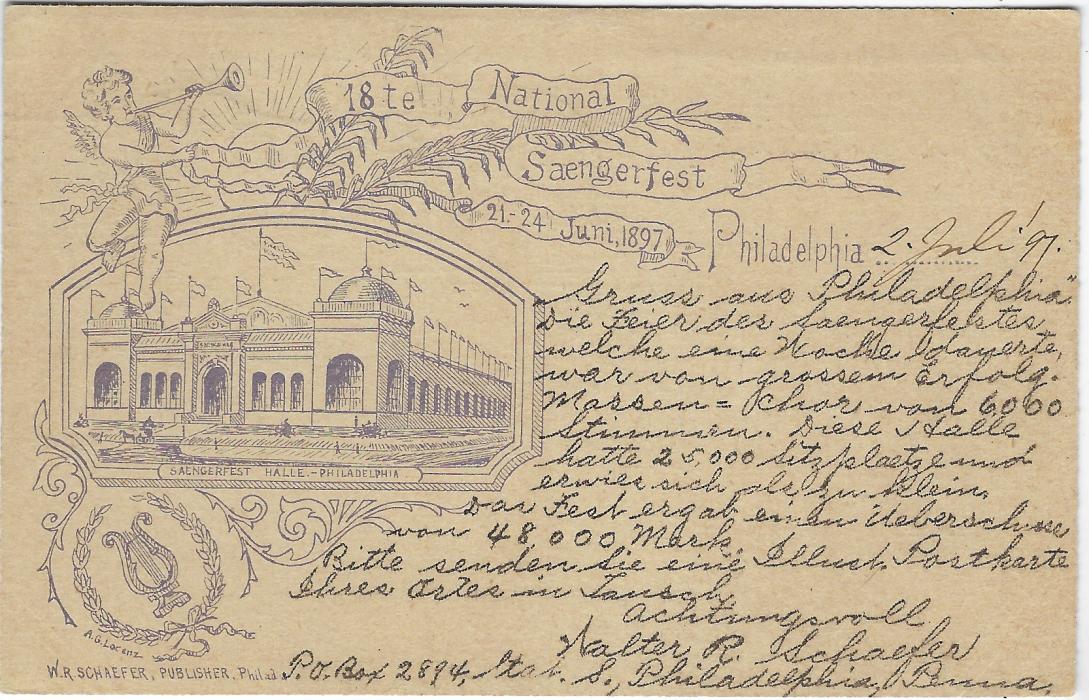 18te National
Saengerfest
21.-24 Juni, 1897
Philadelphia 2. Juli '97.
"Gruss aus Philadelphia"
Die Feier des Saengerfestes
welche eine Woche dauerte,
war von grossem Erfolg.
Massen= chor von 6000
Stimmen. Diese Halle
hatte 25,000 Sitzplaetze und
erwies sich als zu klein.
Das Fest ergab einen Ueberschuss
von 48000 Mark
Bitte senden sie eine Illust. Postkarte
Ihres Ortes in Tausch
Achtungsvoll
Walter R. Schaefer
P.O. Box 2894, Sta. S., Philadelphia, Penna
SAENGERFEST HALLE.-PHILADELPHIA
A.G. Lorenz
W.R. SCHAEFER, PUBLISHER. Philad